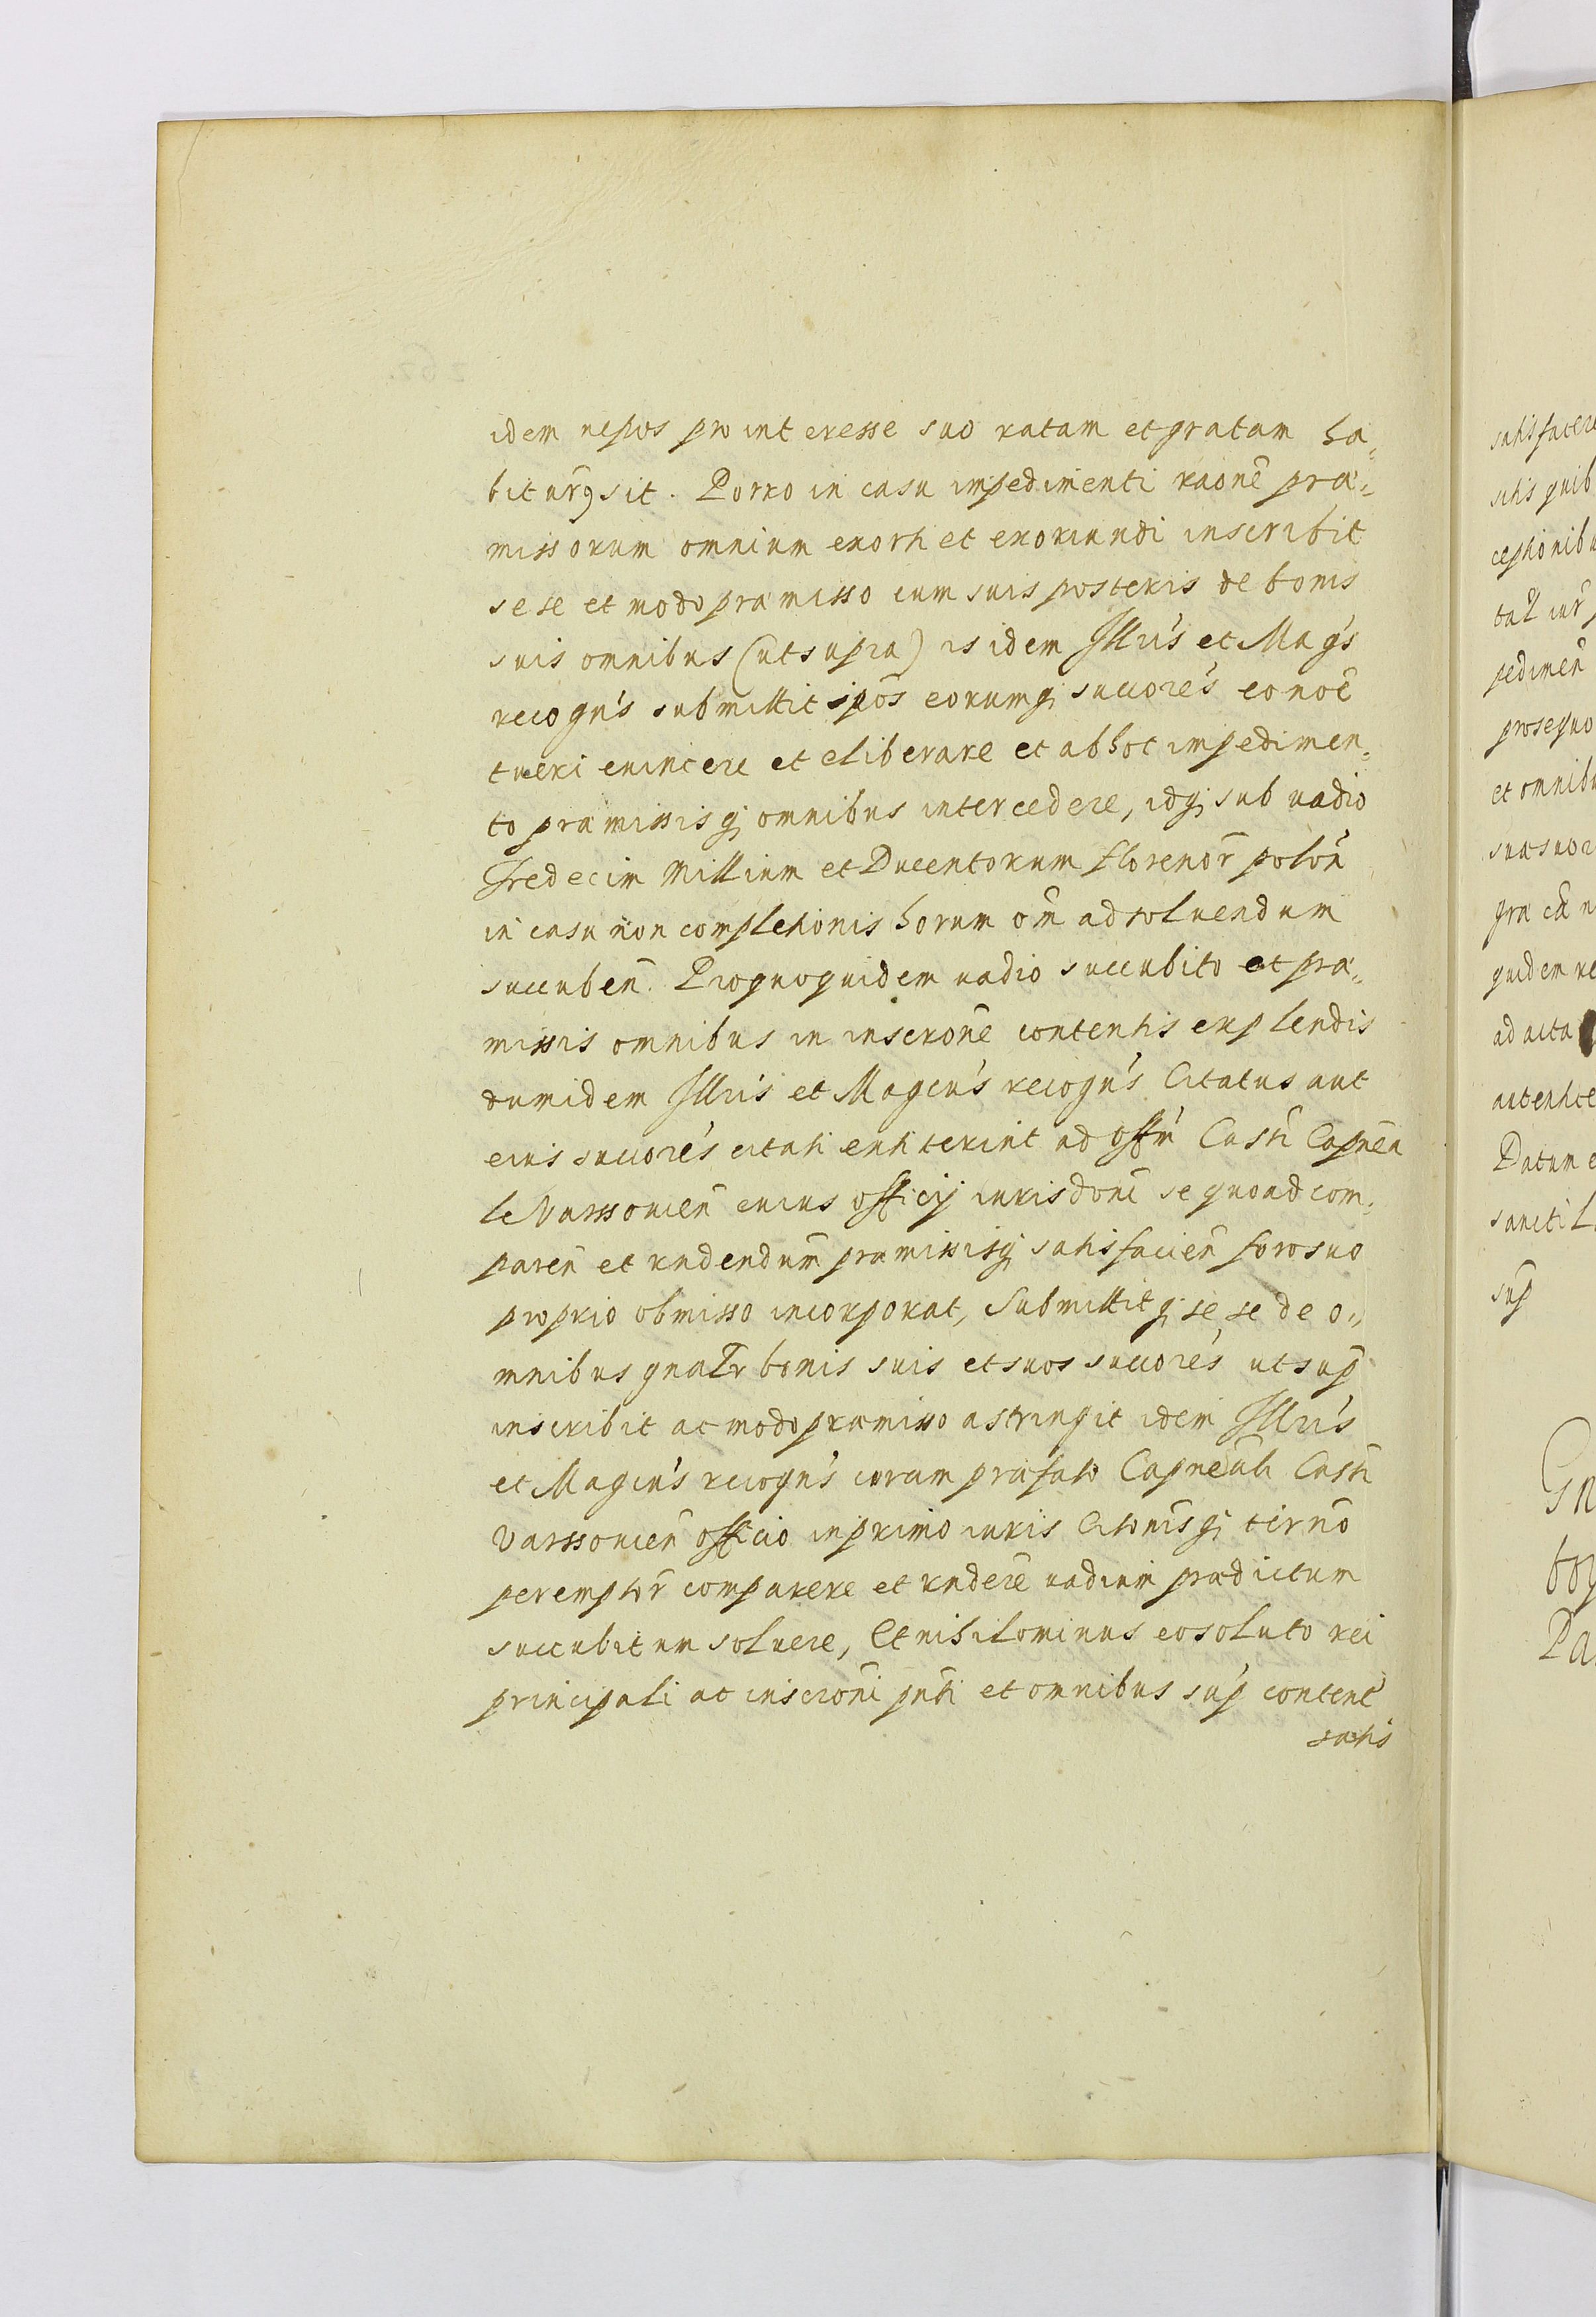 idem nepos pro interesse suo ratam et gratam ha„
biturq sit. Porro in casu impedimenti raone præ„
missorum omnium exorti et exoriundi inscribit
sese et modo præmisso cum suis posteris de bonis
suis omnibus (ut supra) is idem Illris et Mags
recogns submittit ipos eorumq succores eo noe
tueri evincere et eliberare et ab hoc impedimen„
to præmissisq omnibus intercedere, idq sub vadio
Tredecim Millium et Ducentorum florenor polon
in casu non completionis horum om ad solvendum
succuben. Pro quo quidem vadio succubito et præ„
missis omnibus in inscrone contentis explendis
dum idem Illris et Magcus recogns Citatus aut
eius succores citati extiterint ad offm Castr Capnea
le Varssovien cuius officij iurisdoni se quoad com„
paren et rndendum præmissisq satisfacien foro suo
proprio obmisso incorporat, Submittitq se se de o„
mnibus gnalr bonis suis et suos succores ut sup
inscribit ac modo præmisso astringit idem Illris
et Magcus recogns coram præfato Capneali Castr
Varssovien officio in primo iuris Citonisq termo
peremptor comparere et rndere vadium prædictum
succubitum solvere, Et nihilominus eo soluto rei
principali ac inscroni pnti et omnibus sup content
satis
satisfacere
ceptionibu
pedimen
prosequo
et omnibu
quidem re
ad acta
Datum e
sancti L
sup
Gn
Pa